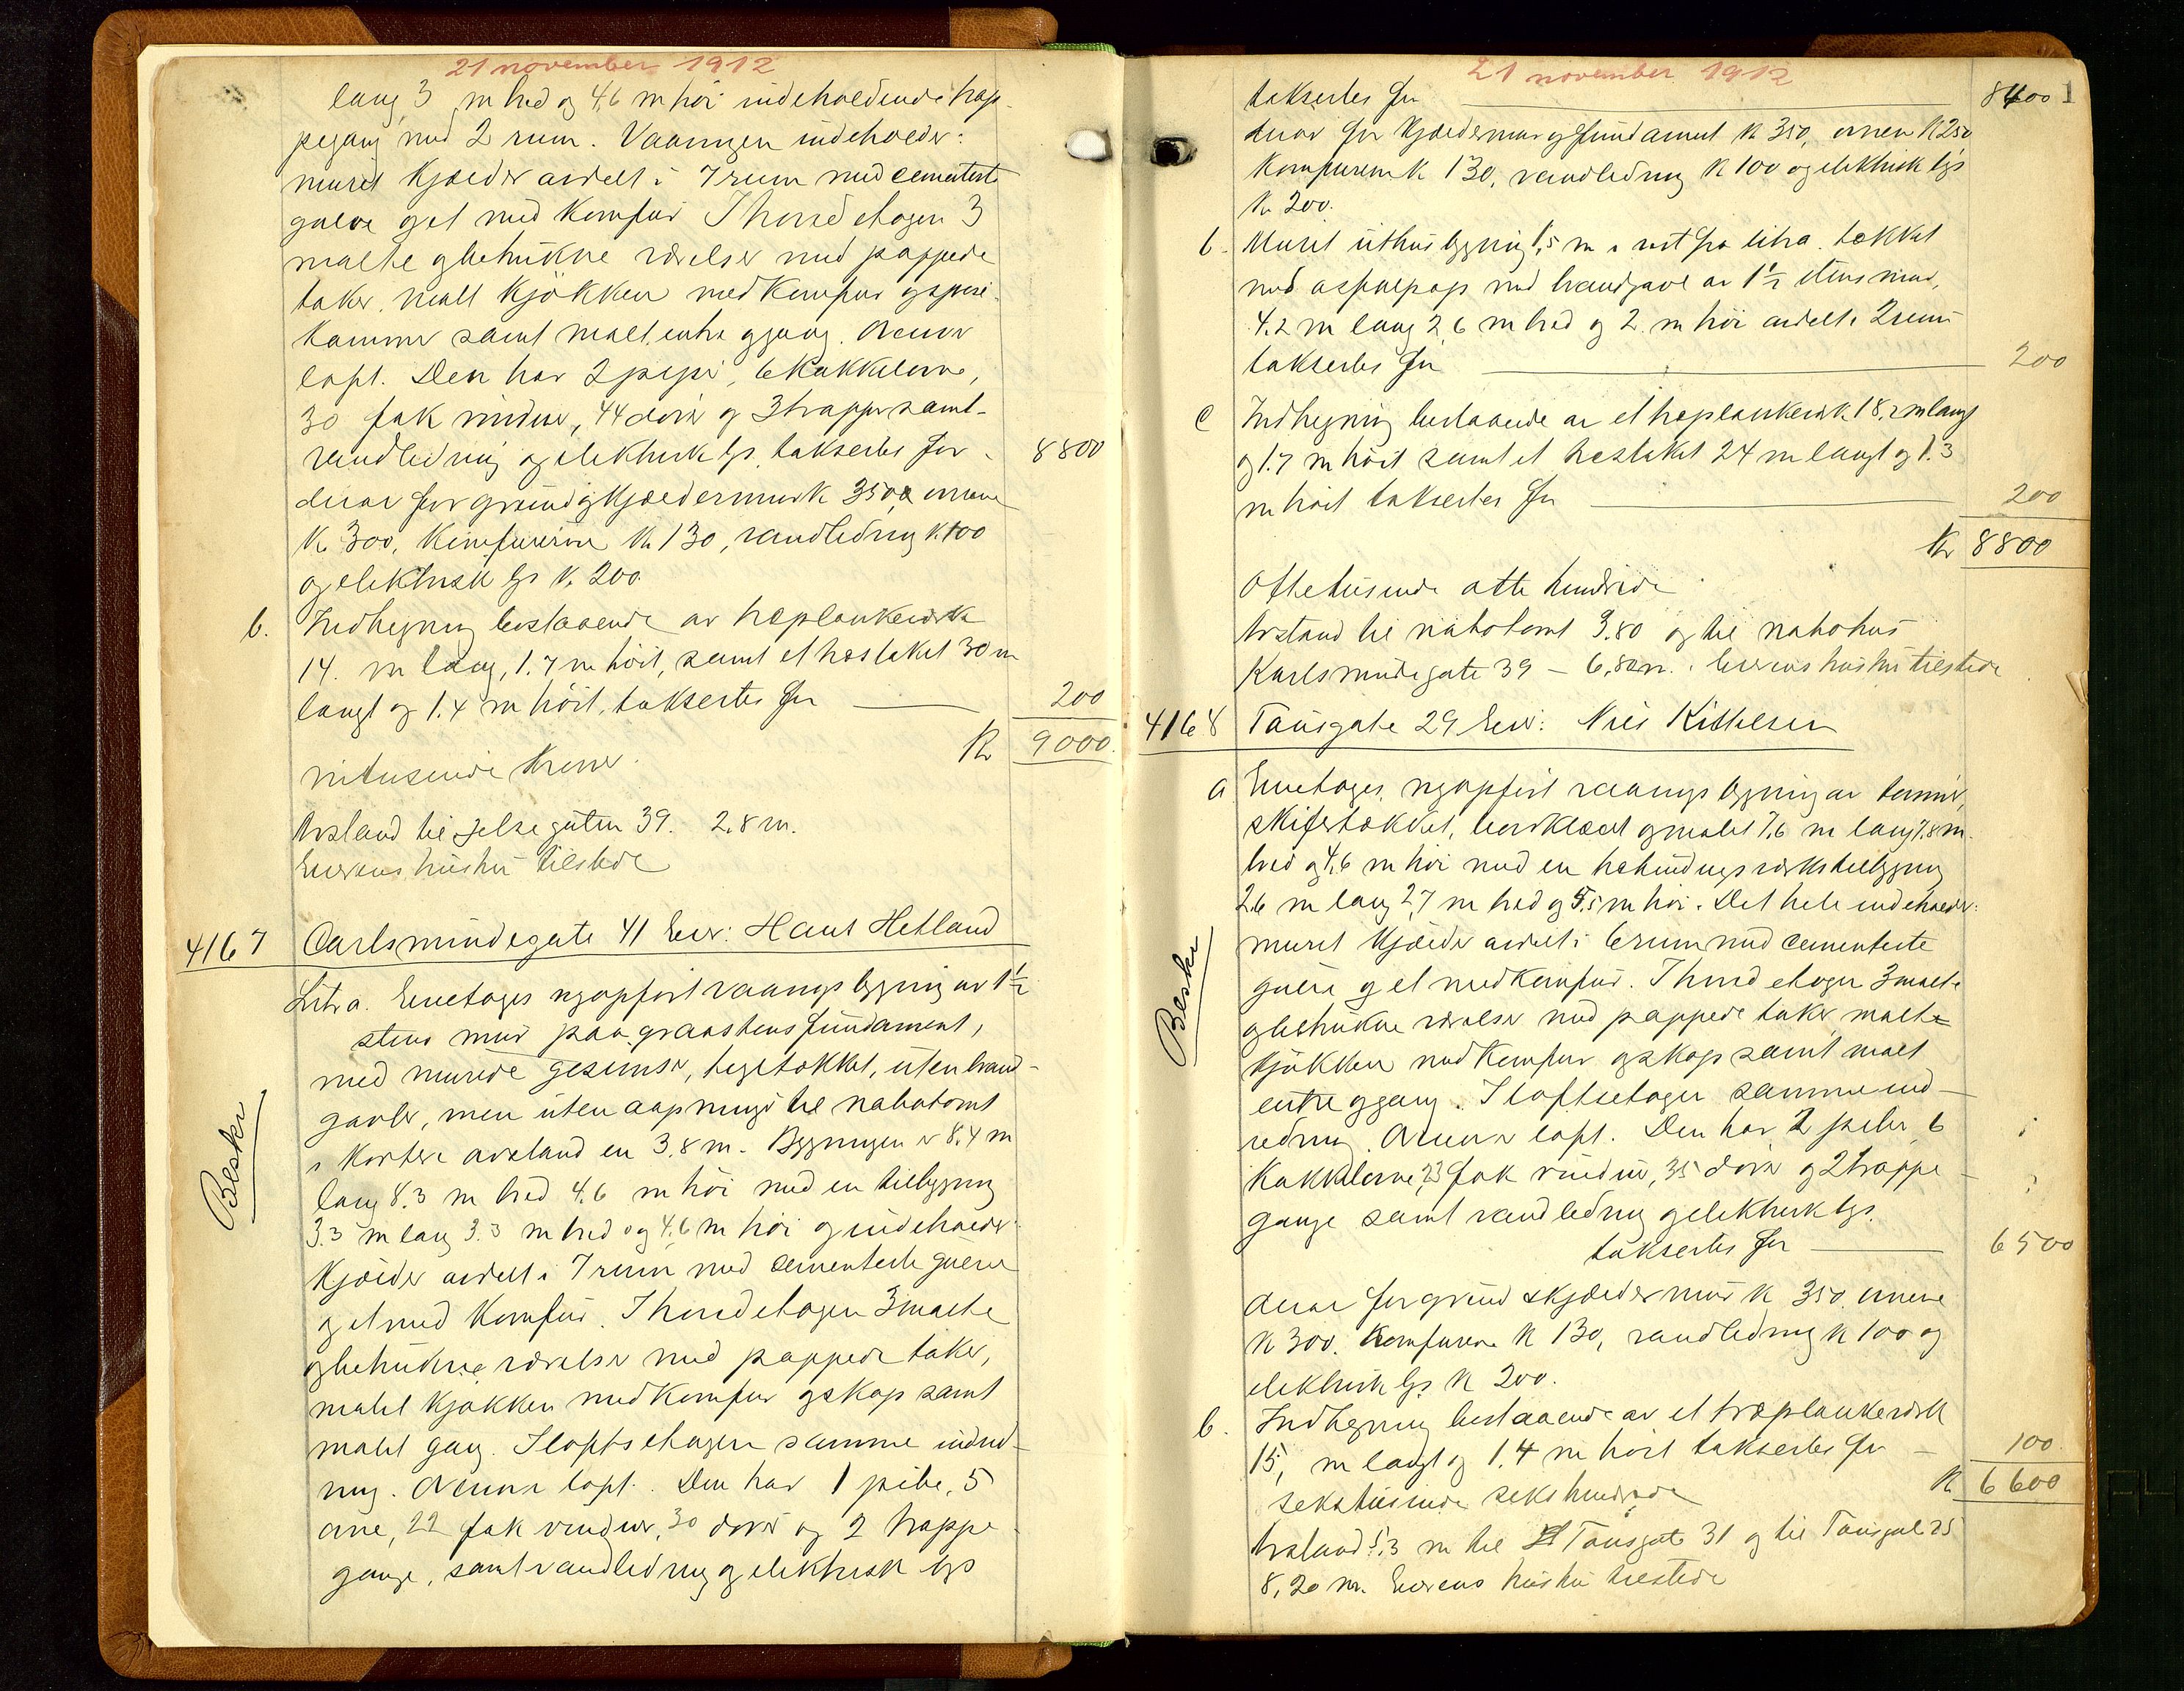 21 november 1912
lang 3 m bred og 4,6 m høi indeholdende trap-
pegang med 2 rum. Vaaningen indeholder:
muret Kjælder avdelt i 7 rum med cementerte
gulve og et med Komfur I hovedetagen 3
malte og betrukne værelser med pappede
taker, malt Kjøkken med Komfur og spise-
kammer samt malt entre og gang. Ovenover
loft. Den har 2 piper, 6 Kakkelovne,
30 fak vinduer, 44 dører og 3 trapper samt
vandledning og elektrisk lys takseres for - 8800
derav for grund og Kjældermur k 350, ovnene
Kr 300, Komfurerne Kr 130, vandledning k 100
og elektrisk lys k. 200.
b. Indhegning bestaaende av træplankeverk
14. m lang, 1.7 m høit, samt et træstaket 30 m
langt og 1.4 m høit, takseres for 200
Kr 9000.
nitusende kroner.
Avstand til Jelsegaten 39. 2,8 m.
Eierens hustru tilstede
4167 Carlsmindegate 41 Eier: Hans Hetland
Beskr
Litra. Enetages nyopført vaaningsbygning av 1 1/2
stens mur paa graastensfundament,
med murede gesimser, tegltækket, uten brand-
gavler, men uten aapninger til nabotomt
i kortere avstand en 3,8 m. Bygningen er 8,4 m
lang 8.3 m bred 4.6 m høi med en tilbygning
3.3 m lang 3.3 m bred og 4,6 m høi og indeholder
Kjælder avdelt i 7 rum med cementerte gulver
og et med Komfur. I hovedetagen 3 malte
og betrukne værelser med pappede taker,
malet Kjøkken med Komfur og skap samt
malet gang. I loftsetagen samme indred-
ning. Ovenover loft. Den har 1 pibe, 5
ovne, 22 fak vinduer, 30 dører og 2 trappe-
gange, samt vandledning og elektrisk lys
21 november 1912
takseres for 8400
derav for Kjældermur og fundament k 350, ovnene k 250
Komfurerne k 130, vandledning k 100 og elektrisk lys
Kr 200.
b. Muret uthusbygning 1,5 m i vest fra litra. tækket
med asfaltpap med brandgavl av 1 1/2 stens mur,
4.2 m lang 2,6 m bred og 2. m høi avdelt i 2 rum
takseres for 200
c Indhegning bestaaende av et træplankeverk 18,2 m langt
og 1.7 m høit samt et træstaket 24 m langt og 1.3
m høit takseres for 200
Kr 8800
Ottetusende otte hundrede
Avstand til nabotomt 3.80 og til nabohus
Karlsmindegate 39 - 6,80 m. Eierens hustru tilstede
4168 Tausgate 29 Eier: Nils Kittelsen
Beskr
a Enetages, nyopført vaaningsbygning av tømmer,
skifertækket, bordklædt og malet 7,6 m lang 7,8 m
bred og 4,6 m høi med en utbindingsverks tilbygning
2,6 m lang 2,7 m bred og 5.5 m høi. Det hele indeholder:
muret Kjælder avdelt i 6 rum med cementerte
gulve og et med Komfur. I hovedetagen 3 malte
og betrukne værelser med pappede taker, malte
Kjøkken med Komfur og skap samt malt
entre og gang. I loftsetagen samme ind-
redning. Ovenover loft. Den har 2 piber, 6
Kakkelovne, 23 fak vinduer, 35 dører og 2 trappe-
gange samt vandledning og elektrisk lys.
takseres for 6500
derav for grund & kjældermur k 350. ovnene
k 300. Komfurerne k 130, vandledning k 100 og
elektrisk lys k 200.
b. Indhegning bestaaende av et træplankeverk
15, m langt og 1.4 m høit takseres for - 100.
K 6600
sekstusinde sekshundrede
Avstand 5.3 m til Tausgate 31 og til Tausgate 25
8,20 m. Eierens hustru tilstede